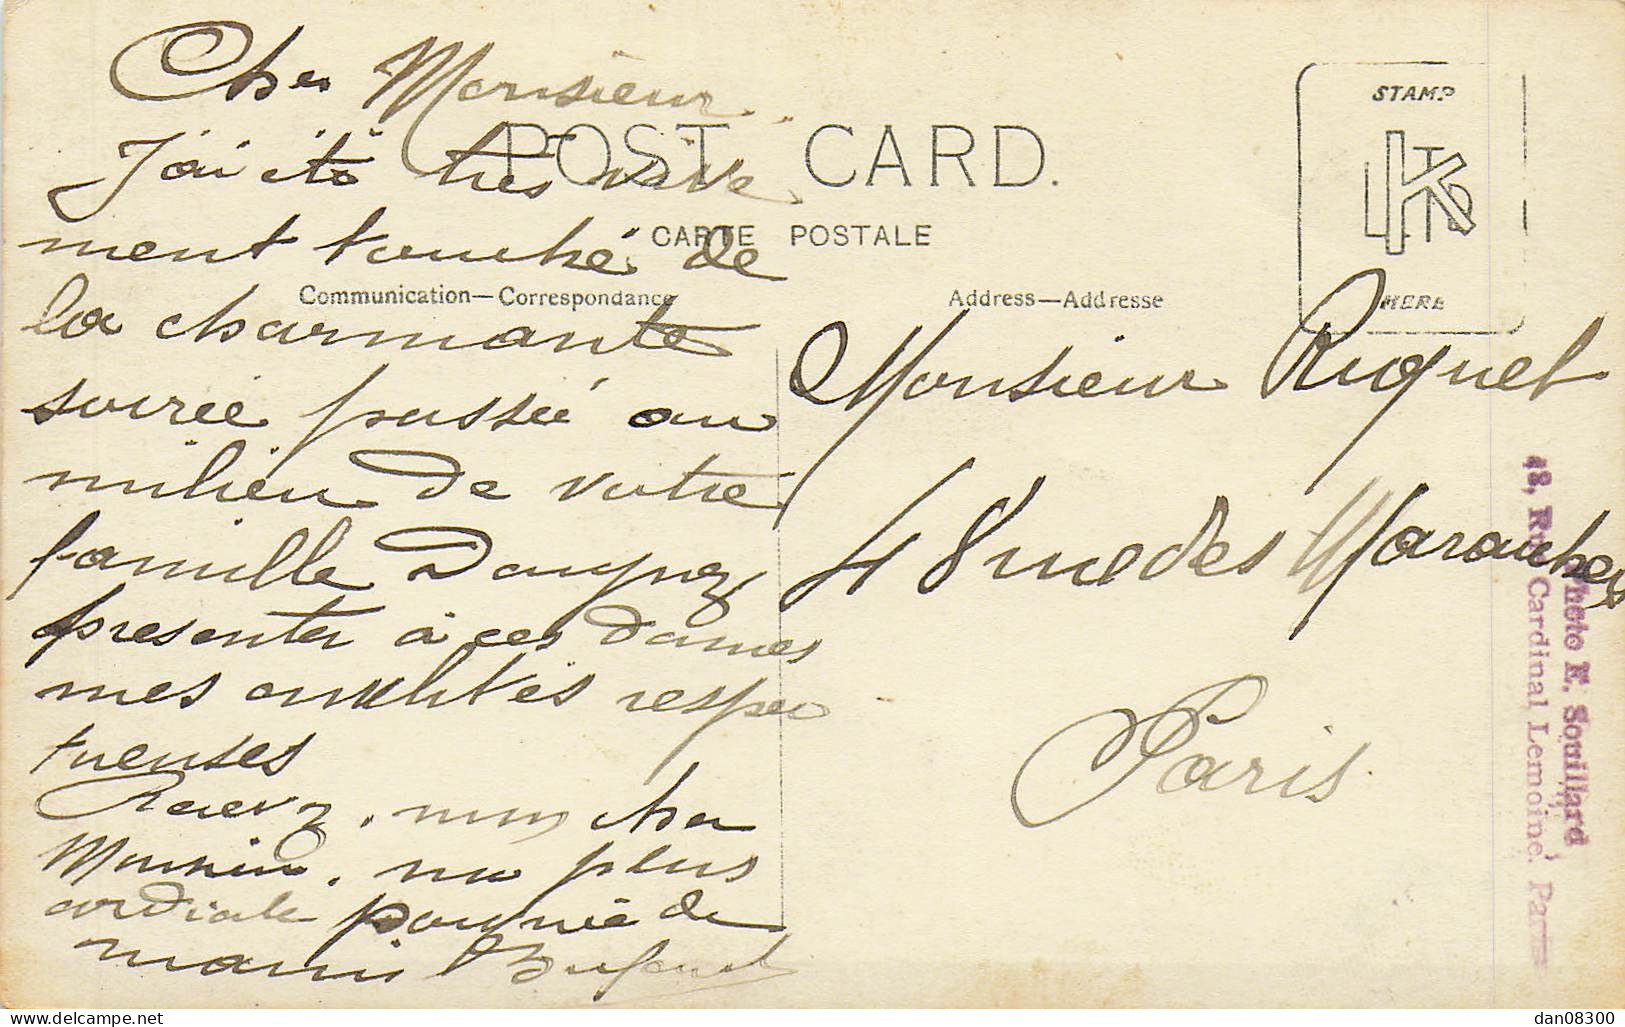 Cher Monsieur.
J'ai été très vive
ment touché de
la charmante
soirée passée au
milieu de votre
famille Daignez
présenter à ces dames
mes amitiés respec
tueuses
Recevez, mon cher
Monsieur, ma plus
cordiale poignée de
main
POST CARD.
CARTE POSTALE
Communication—Correspondance
Address—Addresse
STAMP
K LTD
HERE
Monsieur Riquet
48 rue des Maraichers
Paris
Photo E. Souillard
48, Rue Cardinal Lemoine, Paris
delcampe.net
dan08300